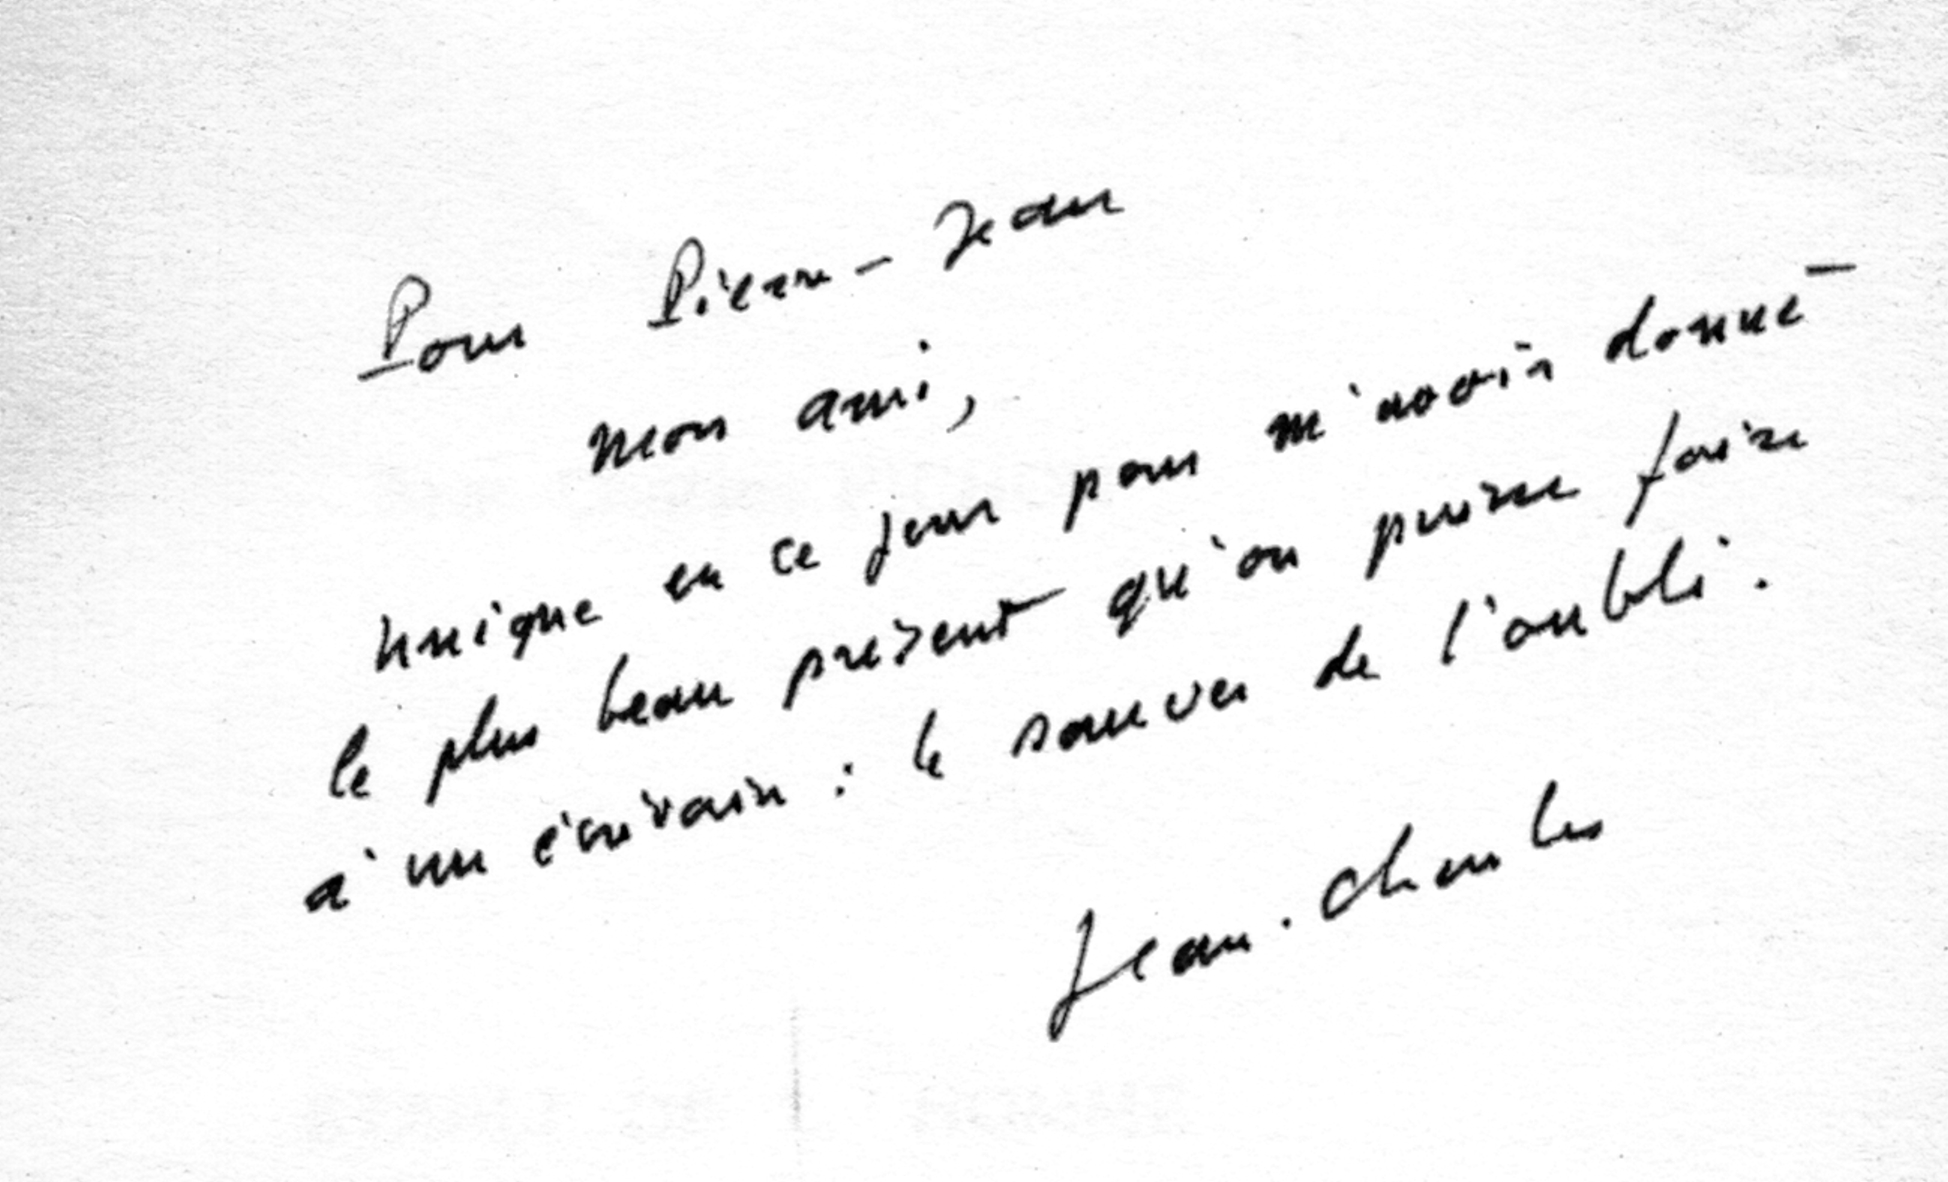 Pour Pierre-Jean
mon ami,
unique en ce jour pour m'avoir donné
le plus beau présent qu'on puisse faire
à un écrivain : le sauver de l'oubli.
Jean-Charles